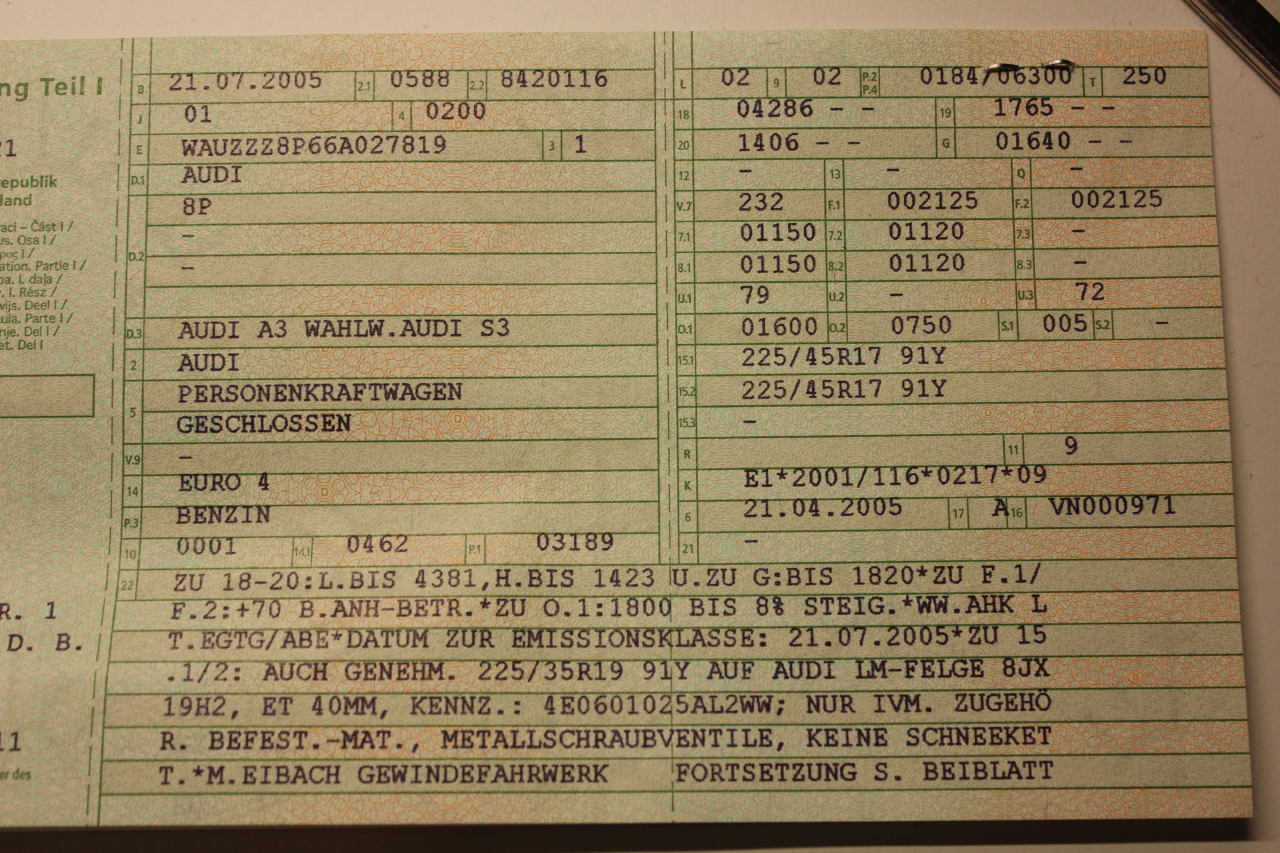 ng Teil I
21
epublik
land
raci – Část I /
us. Osa I /
ρος I /
ation. Partie I /
ba. I. daļa /
r. I. Rész /
wijs. Deel I /
ula. Parte I /
nje. Del I /
et. Del I
R. 1
D. B.
11
er des
B 21.07.2005 2.1 0588 2.2 8420116
J 01 4 0200
E WAUZZZ8P66A027819 3 1
D.1 AUDI
D.2 8P
–
–
D.3 AUDI A3 WAHLW.AUDI S3
2 AUDI
5 PERSONENKRAFTWAGEN
GESCHLOSSEN
V.9 –
14 EURO 4
P.3 BENZIN
10 0001 14.1 0462 P.1 03189
L 02 9 02 P.2 P.4 0184/06300 T 250
18 04286 – – 19 1765 – –
20 1406 – – G 01640 – –
12 – 13 – Q –
V.7 232 F.1 002125 F.2 002125
7.1 01150 7.2 01120 7.3 –
8.1 01150 8.2 01120 8.3 –
U.1 79 U.2 – U.3 72
O.1 01600 O.2 0750 S.1 005 S.2 –
15.1 225/45R17 91Y
15.2 225/45R17 91Y
15.3 –
R 11 9
K E1*2001/116*0217*09
6 21.04.2005 17 A 16 VN000971
21 –
22 ZU 18-20:L.BIS 4381,H.BIS 1423 U.ZU G:BIS 1820*ZU F.1/
F.2:+70 B.ANH-BETR.*ZU O.1:1800 BIS 8% STEIG.*WW.AHK L
T.EGTG/ABE*DATUM ZUR EMISSIONSKLASSE: 21.07.2005*ZU 15
.1/2: AUCH GENEHM. 225/35R19 91Y AUF AUDI LM-FELGE 8JX
19H2, ET 40MM, KENNZ.: 4E0601025AL2WW; NUR IVM. ZUGEHÖ
R. BEFEST.-MAT., METALLSCHRAUBVENTILE, KEINE SCHNEEKET
T.*M.EIBACH GEWINDEFAHRWERK FORTSETZUNG S. BEIBLATT